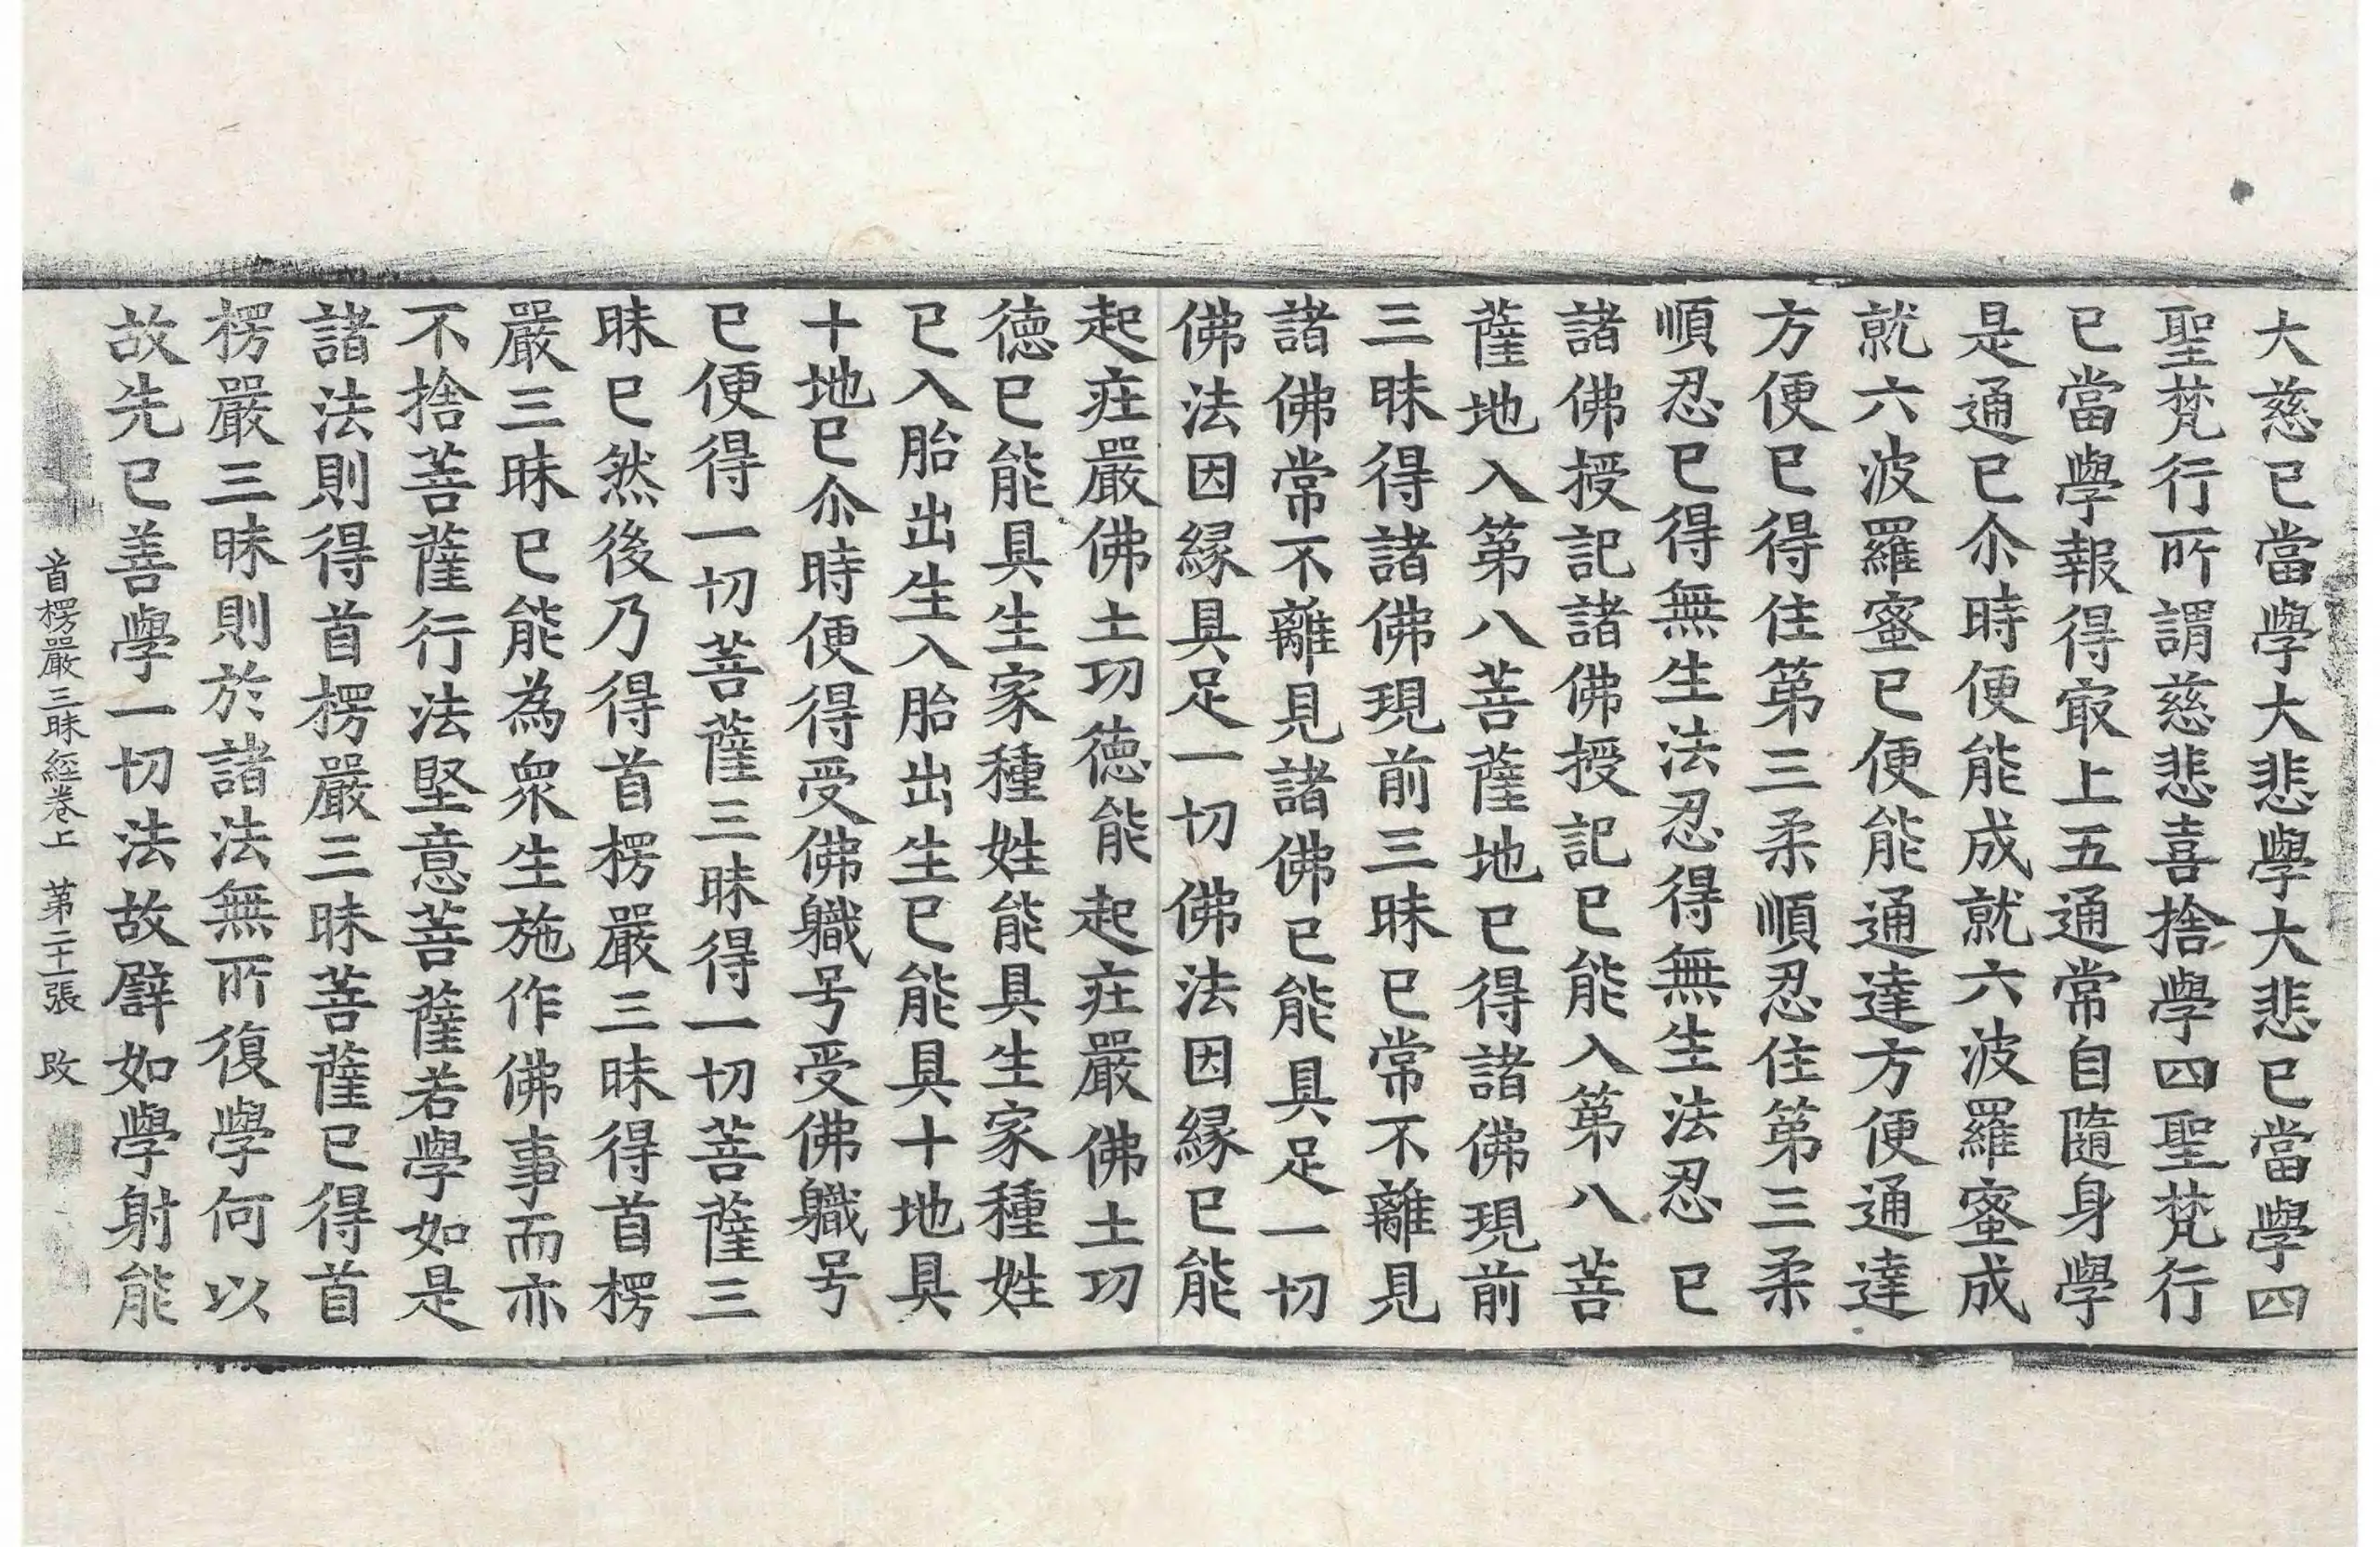 大慈已當學大悲學大悲已當學四
聖梵行所謂慈悲喜捨學四聖梵行
已當學報得冣上五通常自隨身學
是通已尒時便能成就六波羅蜜成
就六波羅蜜已便能通達方便通達
方便已得住第三柔順忍住第三柔
順忍已得無生法忍得無生法忍已
諸佛授記諸佛授記已能入第八菩
薩地入第八菩薩地已得諸佛現前
三昧得諸佛現前三昧已常不離見
諸佛常不離見諸佛已能具足一切
佛法因縁具足一切佛法因縁已能
起㽵嚴佛土功徳能起㽵嚴佛土功
徳已能具生家種姓能具生家種姓
已入胎出生入胎出生已能具十地具
十地已尒時便得受佛軄号受佛軄号
已便得一切菩薩三昧得一切菩薩三
昧已然後乃得首楞嚴三昧得首楞
嚴三昧已能為衆生施作佛事而亦
不捨菩薩行法堅意菩薩若學如是
諸法則得首楞嚴三昧菩薩已得首
楞嚴三昧則於諸法無所復學何以
故先已善學一切法故譬如學射能
首楞嚴三昧經卷上 第二十一張 改